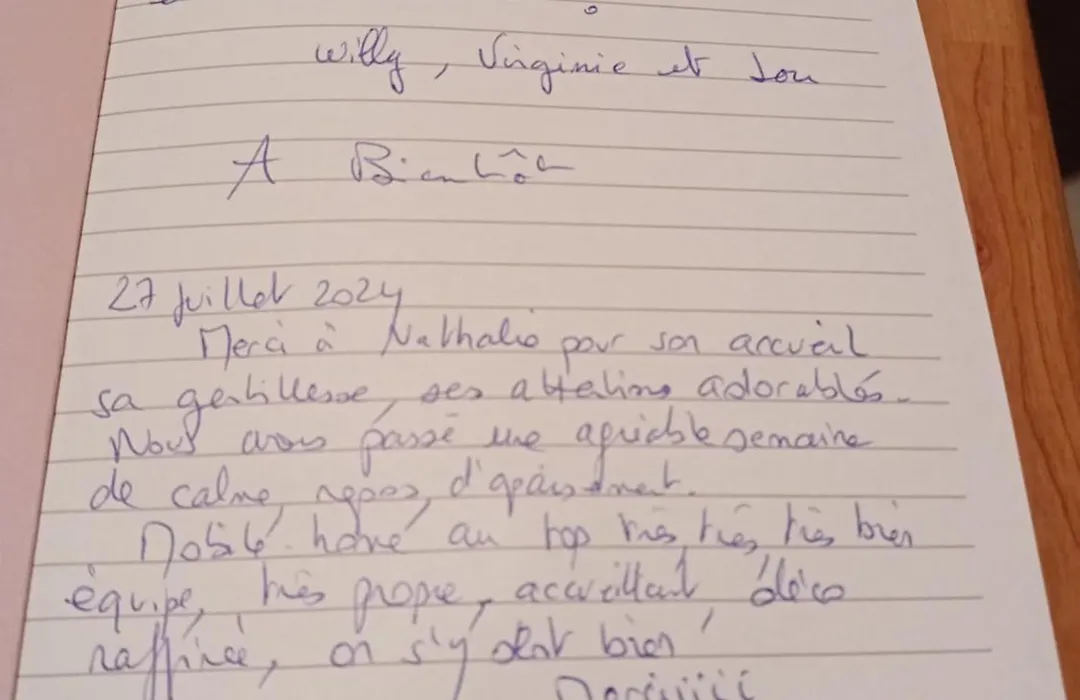 Willy, Virginie et Lou
A Bientôt
27 juillet 2024
Merci à Nathalie pour son accueil
sa gentillesse, ses attentions adorables.
Nous avons passé une agréable semaine
de calme, repos, d'apaisement.
Mobile home au top très, très, très bien
équipé, très propre, accueillant, déco
raffinée, on s'y sent bien !
Merciiiii